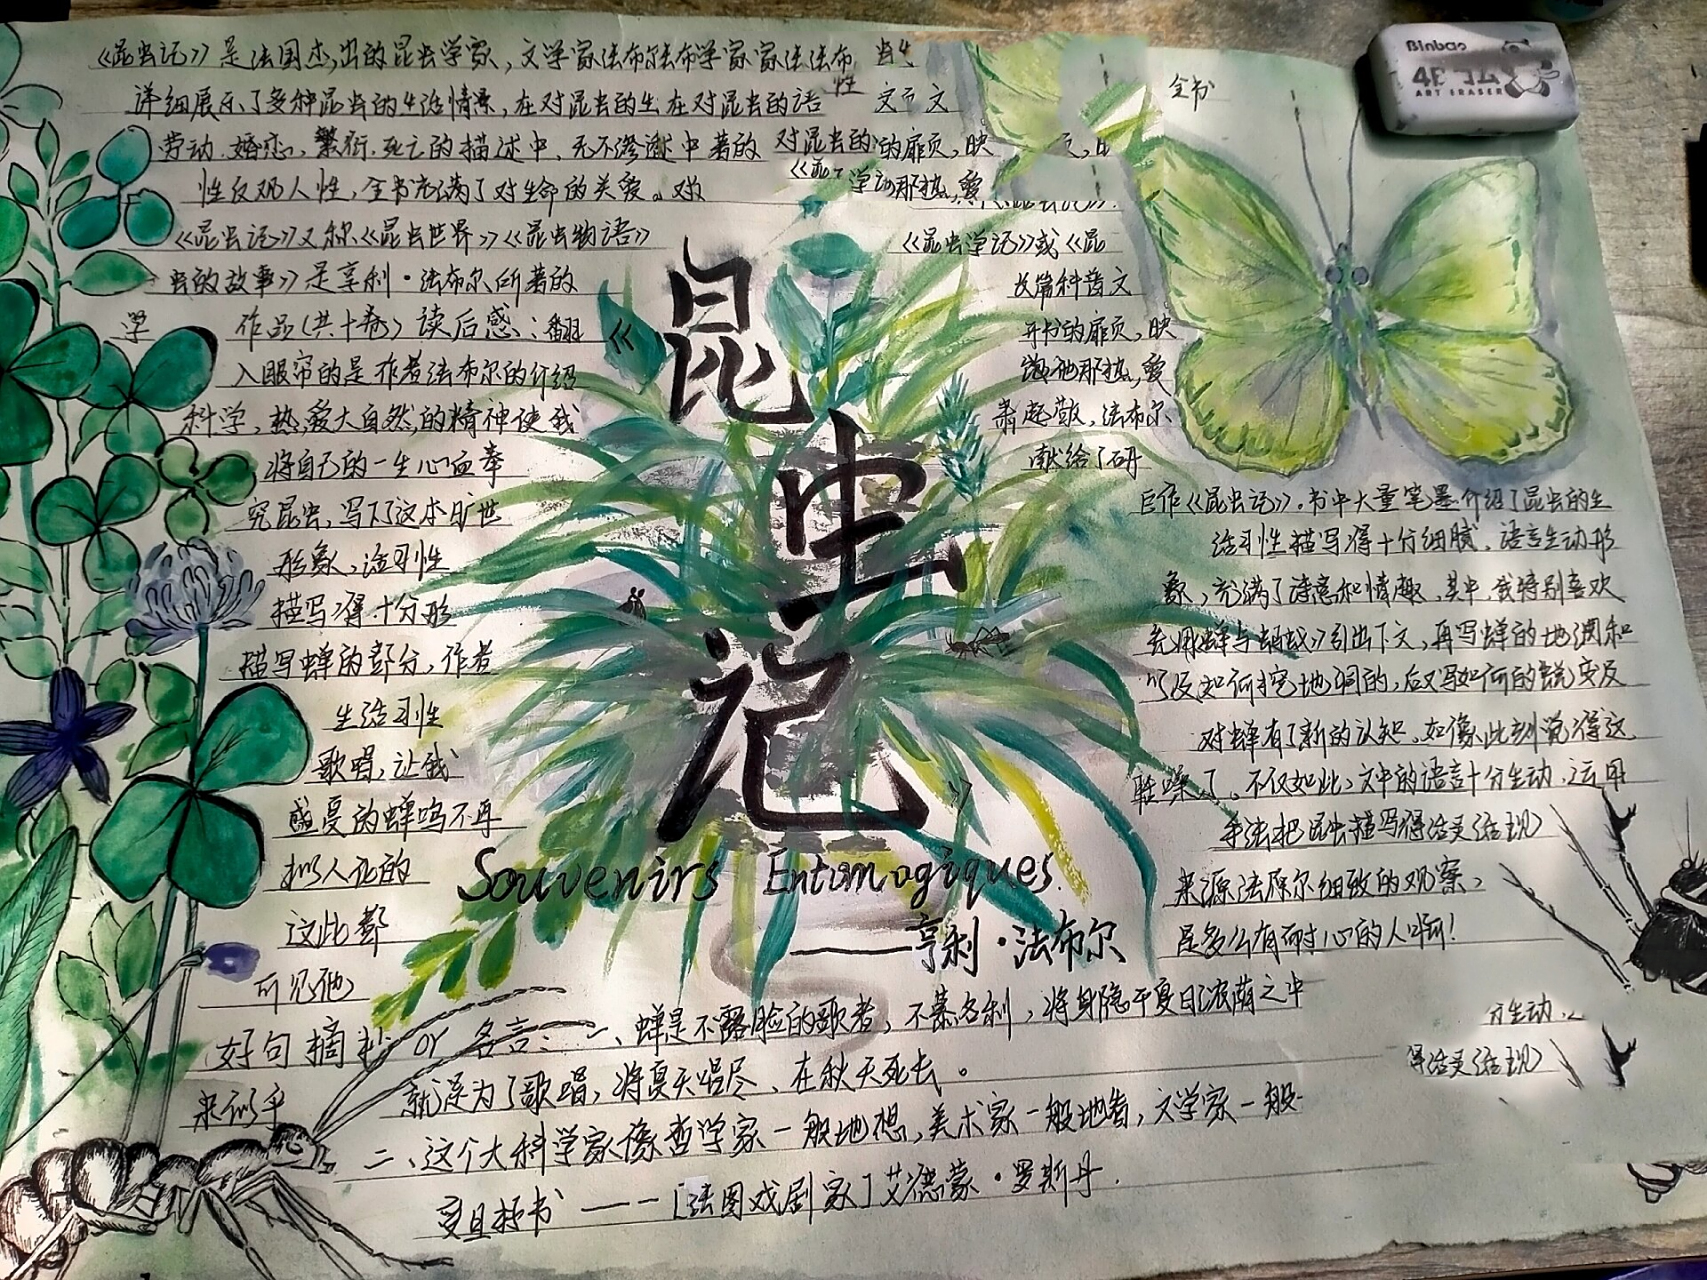 《昆虫记》是法国杰出的昆虫学家,文学家法布尔法布学家家法法布
全书
详细展示了多种昆虫的生活情景,在对昆虫的生在对昆虫的语性 文 文
劳动.婚恋,繁衍.死亡的描述中,无不渗 中著的 对昆虫的的扉页,映
性反观人性,全书充满了对生命的关爱。对
《昆虫记》又称《昆虫世界》《昆虫物语》《昆虫学记》或《昆
虫的故事》是亨利·法布尔所著的 长篇科普文
学 作品(共十卷)读后感:翻 开书的扉页,映
入眼帘的是作者法布尔的介绍
科学,热爱大自然的精神使我 肃起敬,法布尔
将自己的一生心血奉 献给了研
究昆虫,写下了这本旷世 巨作《昆虫记》.书中大量笔墨介绍了昆虫的生
形象,活习性 活习性描写得十分细腻,语言生动形
描写得十分形 象,充满了诗意和情趣,其中,我特别喜欢
描写蝉的部分,作者 引出下文,再写蝉的地洞和
生活习性 以及如何挖地洞的,后又写如何的蜕变及
歌唱,让我 对蝉有了新的认知.如像此刻觉得这
盛夏的蝉鸣不再 聒噪了、不仅如此,文中的语言十分生动,运用
拟人化的 手法把昆虫描写得活灵活现
这些都 来源法原尔细致的观察,
可见他 是多么有耐心的人啊!
《昆虫记》
Souvenirs Entomogiques.
——亨利·法布尔
好句摘抄 or 名言:一、蝉是不露脸的歌者,不慕名利,将身隐于夏日浓荫之中
分生动
来似乎 就是为了歌唱,将夏天唱尽、在秋天死去。
得活灵活现
二、这个大科学家像哲学家一般地想,美术家一般地看,文学家一般
书 ——[法国戏剧家]艾德蒙·罗斯丹.
Binbao
4B
ART ERASER